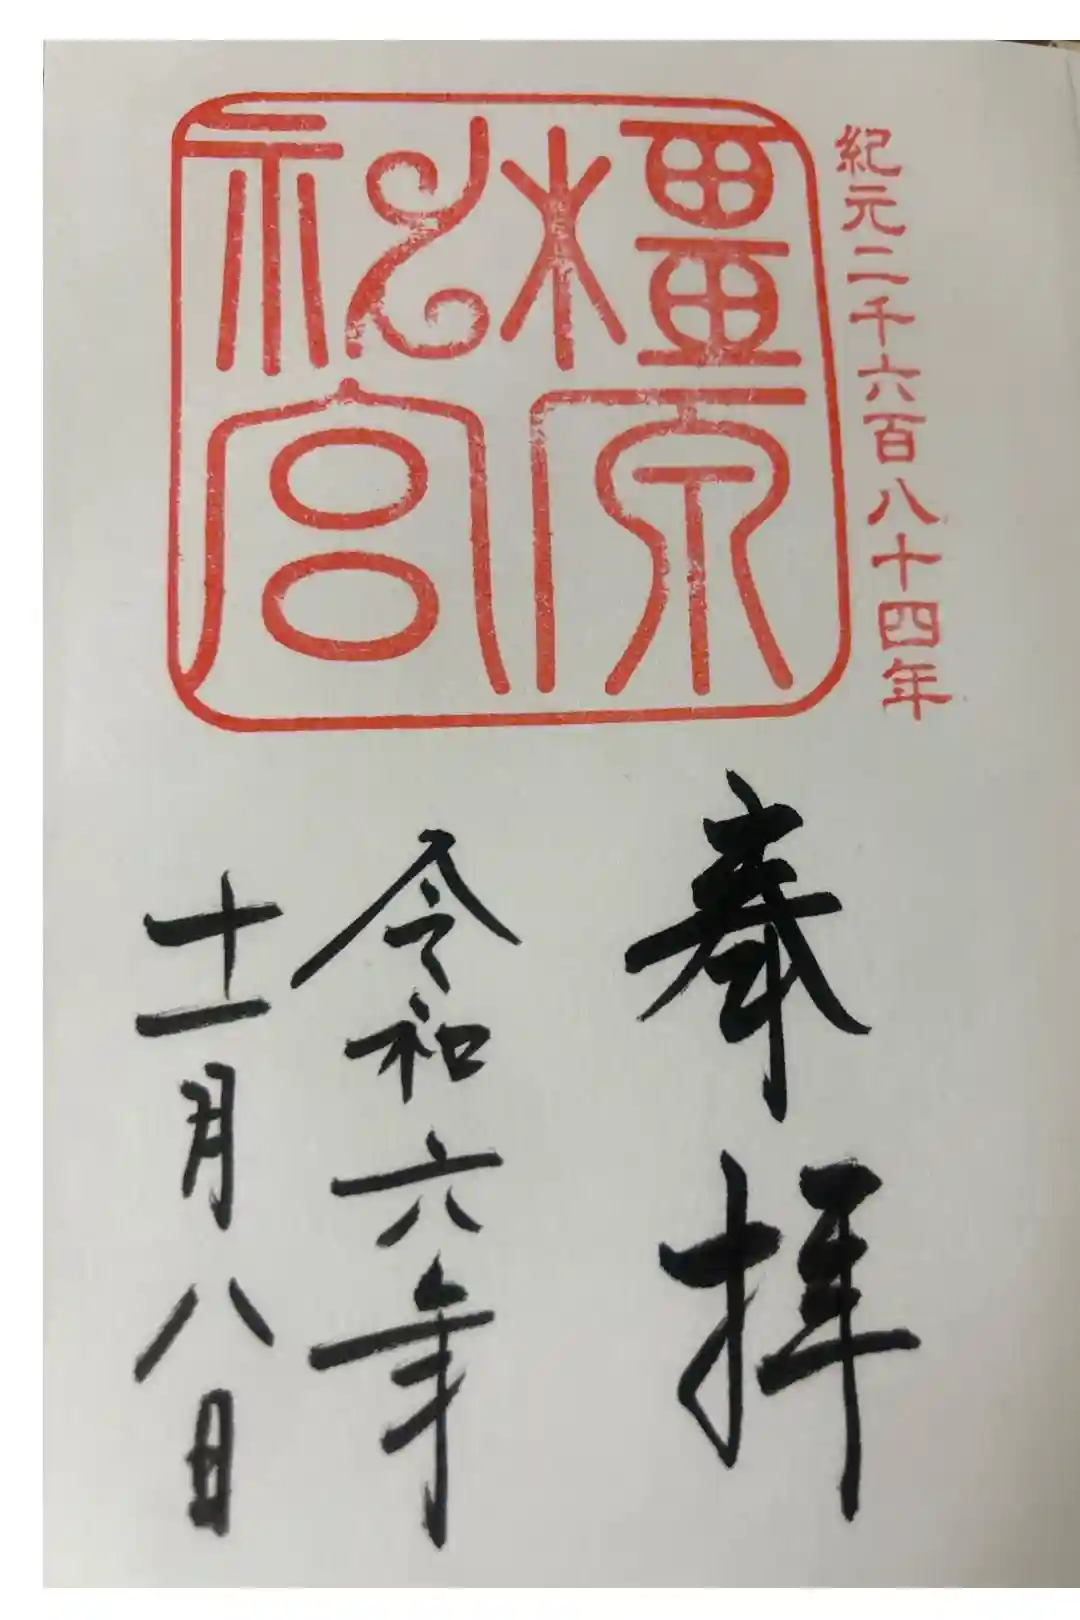 紀元二千六百八十四年
橿原
神宮
奉拝
令和六年
十一月八日